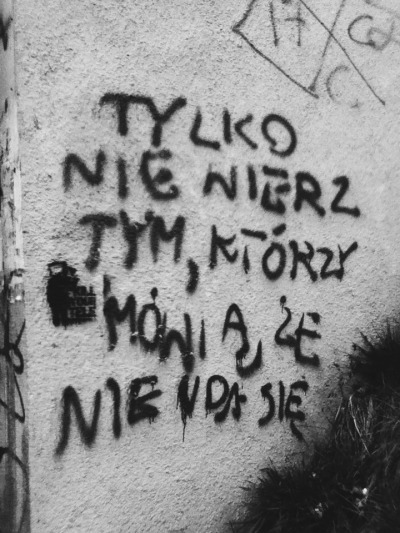 17
TYLKO
NIE WIERZ
TYM, KTÓRZY
MÓWIĄ, ŻE
NIE UDA SIĘ